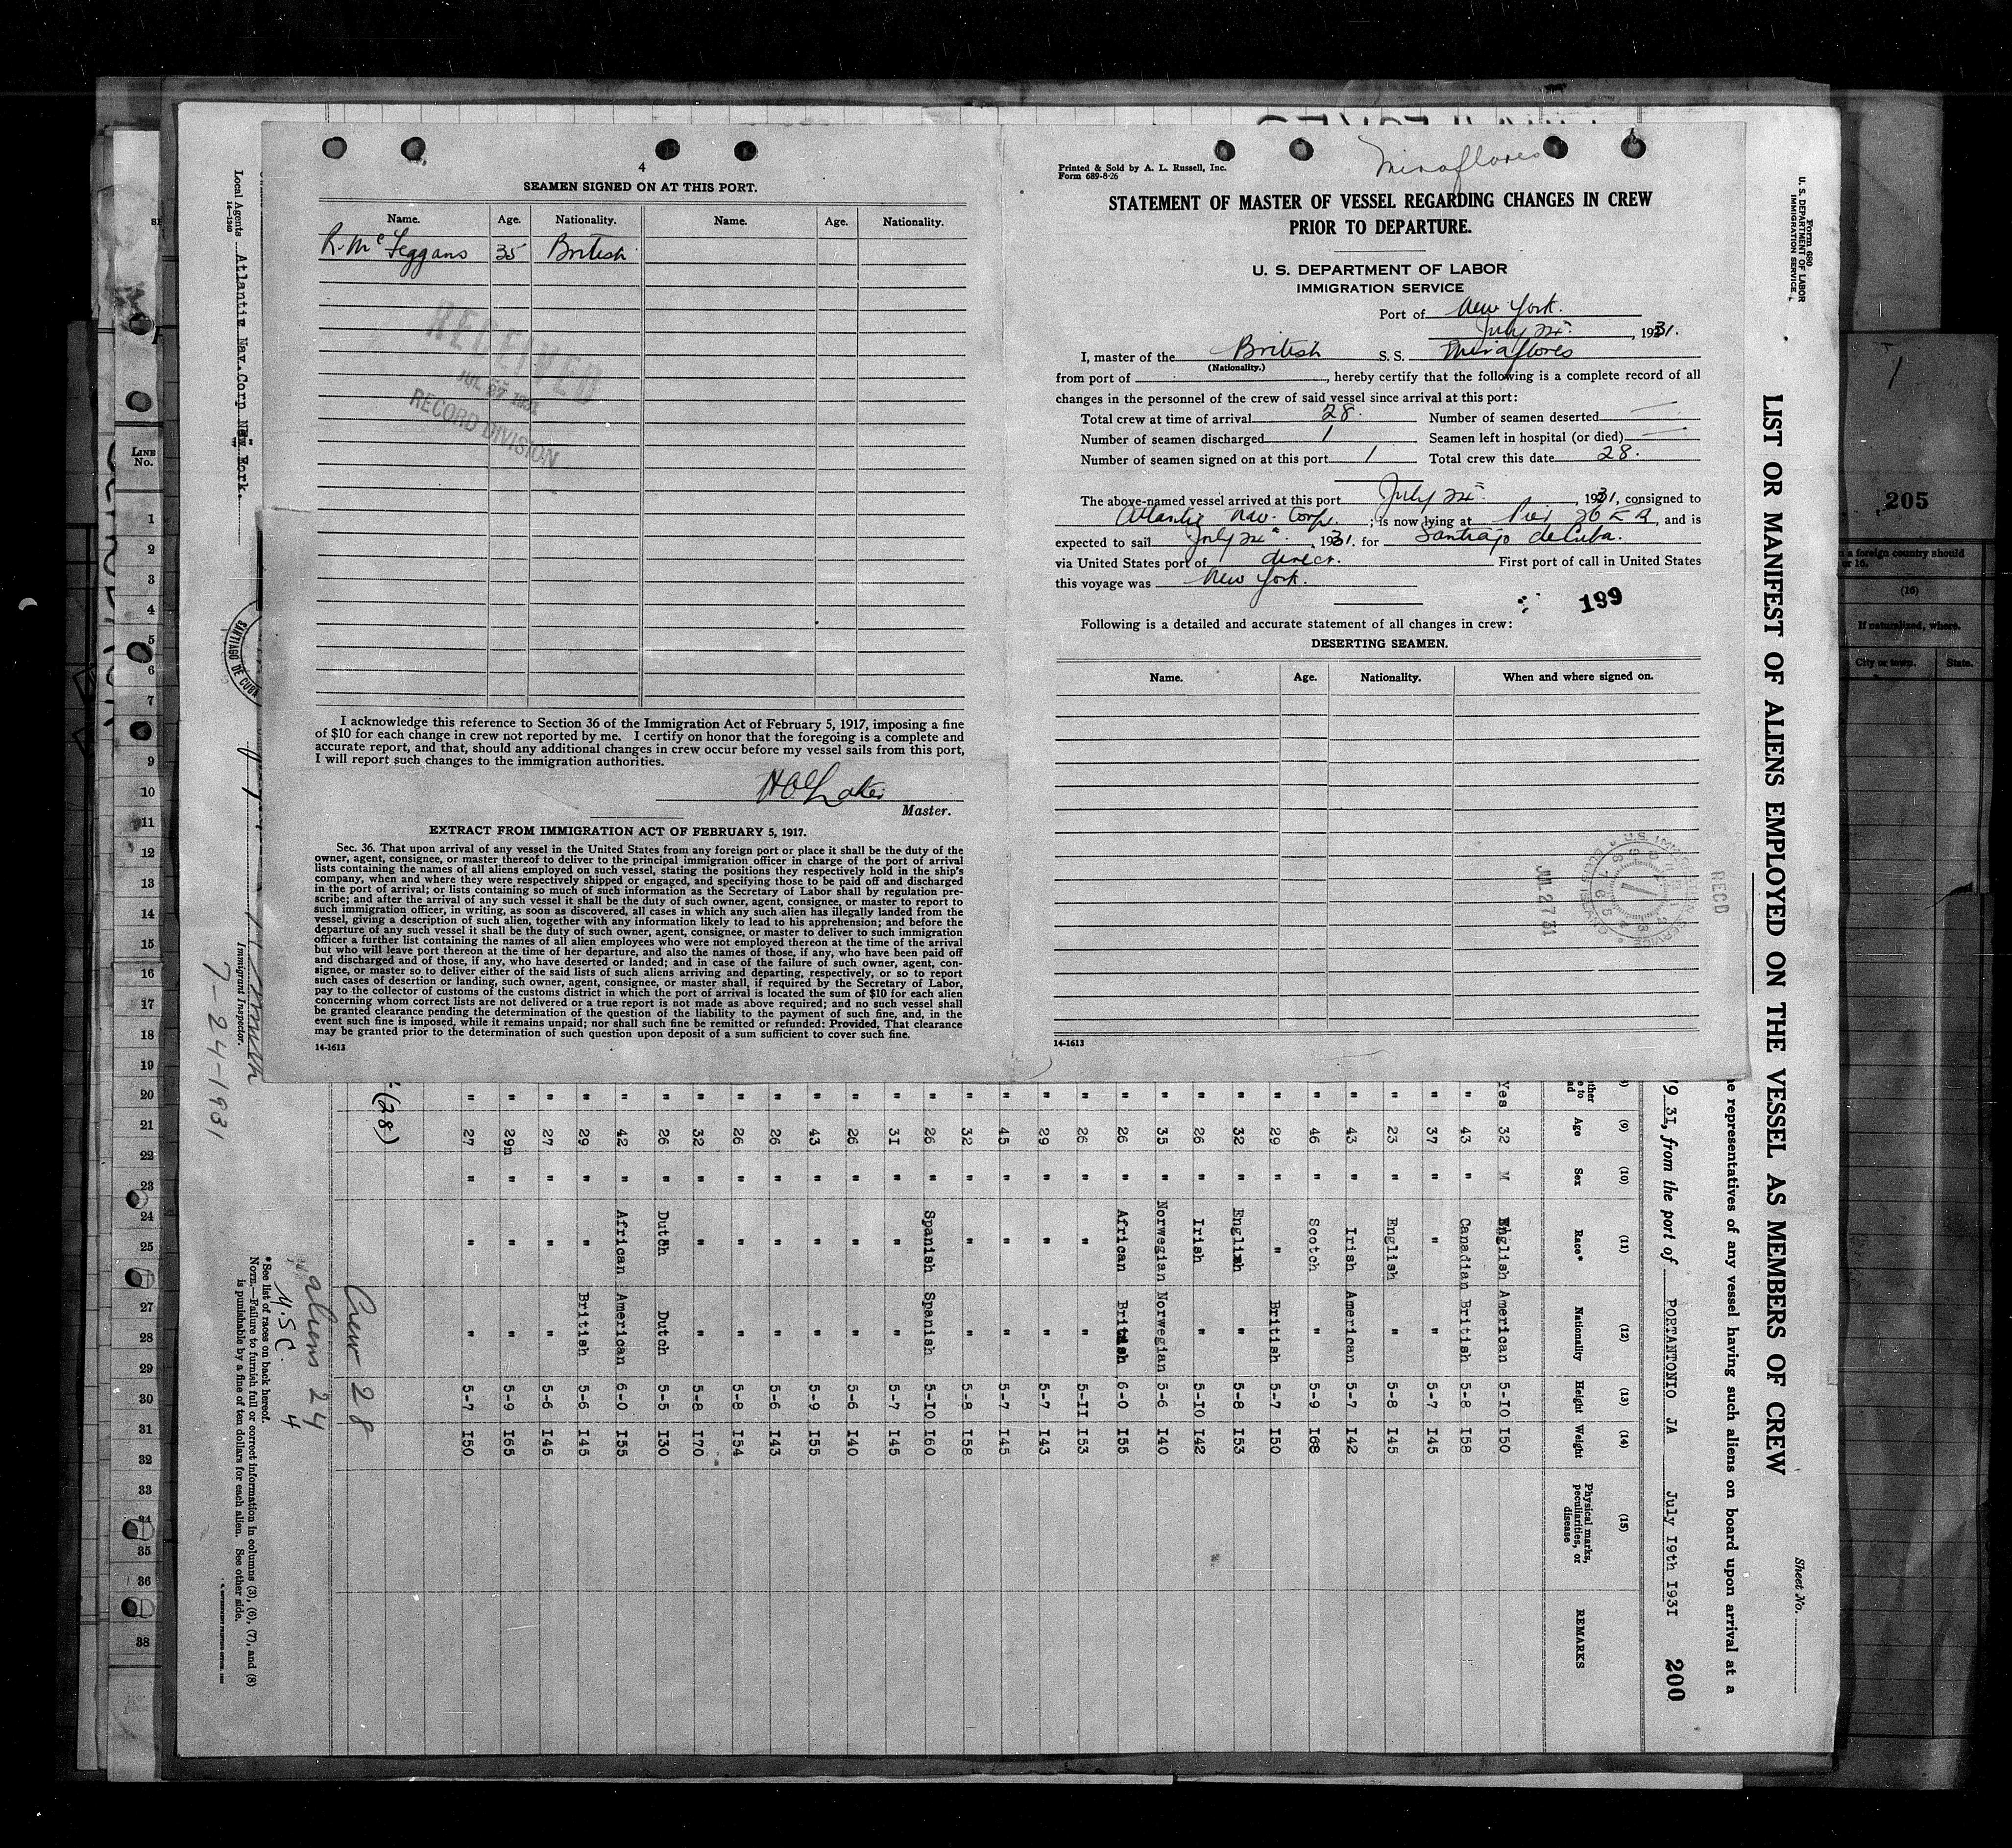 4
SEAMEN SIGNED ON AT THIS PORT.
Name. Age. Nationality. Name. Age. Nationality.
R. McFeggans 35 British
RECEIVED
JUL 27 1931
RECORD DIVISION
I acknowledge this reference to Section 36 of the Immigration Act of February 5, 1917, imposing a fine
of $10 for each change in crew not reported by me. I certify on honor that the foregoing is a complete and
accurate report, and that, should any additional changes in crew occur before my vessel sails from this port,
I will report such changes to the immigration authorities.
Master.
EXTRACT FROM IMMIGRATION ACT OF FEBRUARY 5, 1917.
Sec. 36. That upon arrival of any vessel in the United States from any foreign port or place it shall be the duty of the
owner, agent, consignee, or master thereof to deliver to the principal immigration officer in charge of the port of arrival
lists containing the names of all aliens employed on such vessel, stating the positions they respectively hold in the ship's
company, when and where they were respectively shipped or engaged, and specifying those to be paid off and discharged
in the port of arrival; or lists containing so much of such information as the Secretary of Labor shall by regulation pre-
scribe; and after the arrival of any such vessel it shall be the duty of such owner, agent, consignee, or master to report to
such immigration officer, in writing, as soon as discovered, all cases in which any such alien has illegally landed from the
vessel, giving a description of such alien, together with any information likely to lead to his apprehension; and before the
departure of any such vessel it shall be the duty of such owner, agent, consignee, or master to deliver to such immigration
officer a further list containing the names of all alien employees who were not employed thereon at the time of the arrival
but who will leave port thereon at the time of her departure, and also the names of those, if any, who have been paid off
and discharged and of those, if any, who have deserted or landed; and in case of the failure of such owner, agent, con-
signee, or master so to deliver either of the said lists of such aliens arriving and departing, respectively, or so to report
such cases of desertion or landing, such owner, agent, consignee, or master shall, if required by the Secretary of Labor,
pay to the collector of customs of the customs district in which the port of arrival is located the sum of $10 for each alien
concerning whom correct lists are not delivered or a true report is not made as above required; and no such vessel shall
be granted clearance pending the determination of the question of the liability to the payment of such fine, and, in the
event such fine is imposed, while it remains unpaid; nor shall such fine be remitted or refunded: Provided, That clearance
may be granted prior to the determination of such question upon deposit of a sum sufficient to cover such fine.
14-1613
Miraflores
Printed & Sold by A. L. Russell, Inc.
Form 689-8-26
STATEMENT OF MASTER OF VESSEL REGARDING CHANGES IN CREW
PRIOR TO DEPARTURE.
U. S. DEPARTMENT OF LABOR
IMMIGRATION SERVICE
Port of New York.
July 24th, 1931.
I, master of the British S. S. Miraflores
(Nationality.)
from port of , hereby certify that the following is a complete record of all
changes in the personnel of the crew of said vessel since arrival at this port:
Total crew at time of arrival 28. Number of seamen deserted —
Number of seamen discharged 1 Seamen left in hospital (or died) —
Number of seamen signed on at this port 1 Total crew this date 28.
The above-named vessel arrived at this port July 24th, 1931, consigned to
Atlantic Nav. Corp. ; is now lying at Pier 26 E R, and is
expected to sail July 24th, 1931. for Santiago de Cuba.
via United States port of direct. First port of call in United States
this voyage was New York.
199
Following is a detailed and accurate statement of all changes in crew:
DESERTING SEAMEN.
Name. Age. Nationality. When and where signed on.
JUL 27 31
RECD
14-1613
Form 680
U. S. DEPARTMENT OF LABOR
IMMIGRATION SERVICE
Sheet No.
LIST OR MANIFEST OF ALIENS EMPLOYED ON THE VESSEL AS MEMBERS OF CREW
representatives of any vessel having such aliens on board upon arrival at a
9 31, from the port of PORTANTONIO JA July 19th 1931 200
(9) (10) (11) (12) (13) (14) (15)
Age Sex Race* Nationality Height Weight Physical marks, peculiarities, or disease REMARKS
Yes 32 M English American 5-10 150
" 43 " Canadian British 5-8 158
" 37 " " " 5-7 145
" 23 " English " 5-8 145
" 43 " Irish American 5-7 142
" 46 " Scotch " 5-9 168
" 29 " " British 5-7 150
" 32 " English " 5-8 153
" 26 " Irish " 5-10 142
" 35 " Norwegian Norwegian 5-6 140
" 26 " African British 6-0 155
" 26 " " " 5-11 153
" 29 " " " 5-7 143
" 45 " " " 5-7 145
" 32 " " " 5-8 158
" 26 " Spanish Spanish 5-10 160
" 31 " " " 5-7 145
" 26 " " " 5-6 140
" 43 " " " 5-9 155
" 26 " " " 5-6 143
" 26 " " " 5-8 154
" 32 " " " 5-8 170
" 26 " Dutch Dutch 5-5 130
" 42 " African American 6-0 155
" 29 " " British 5-6 145
" 27 " " " 5-6 145
" 29 " " " 5-9 165
" 27 " " " 5-7 150
(28)
Crew 28
aliens 24
U.S.C. 4
*See list of races on back hereof.
NOTE.—Failure to furnish full or correct information in columns (3), (6), (7), and (8)
is punishable by a fine of ten dollars for each alien. See other side.
Local Agents Atlantic Nav.Corp New York.
14-1240
SANTIAGO DE CUBA
Immigrant Inspector.
7-24-1931
LINE
No.
1
2
3
4
5
6
7
9
10
11
12
13
14
15
16
17
18
19
20
21
22
23
24
25
26
27
28
29
30
31
32
33
34
35
36
37
38
205
a foreign country should
or 16.
(16)
If naturalized, where.
City or town. State.